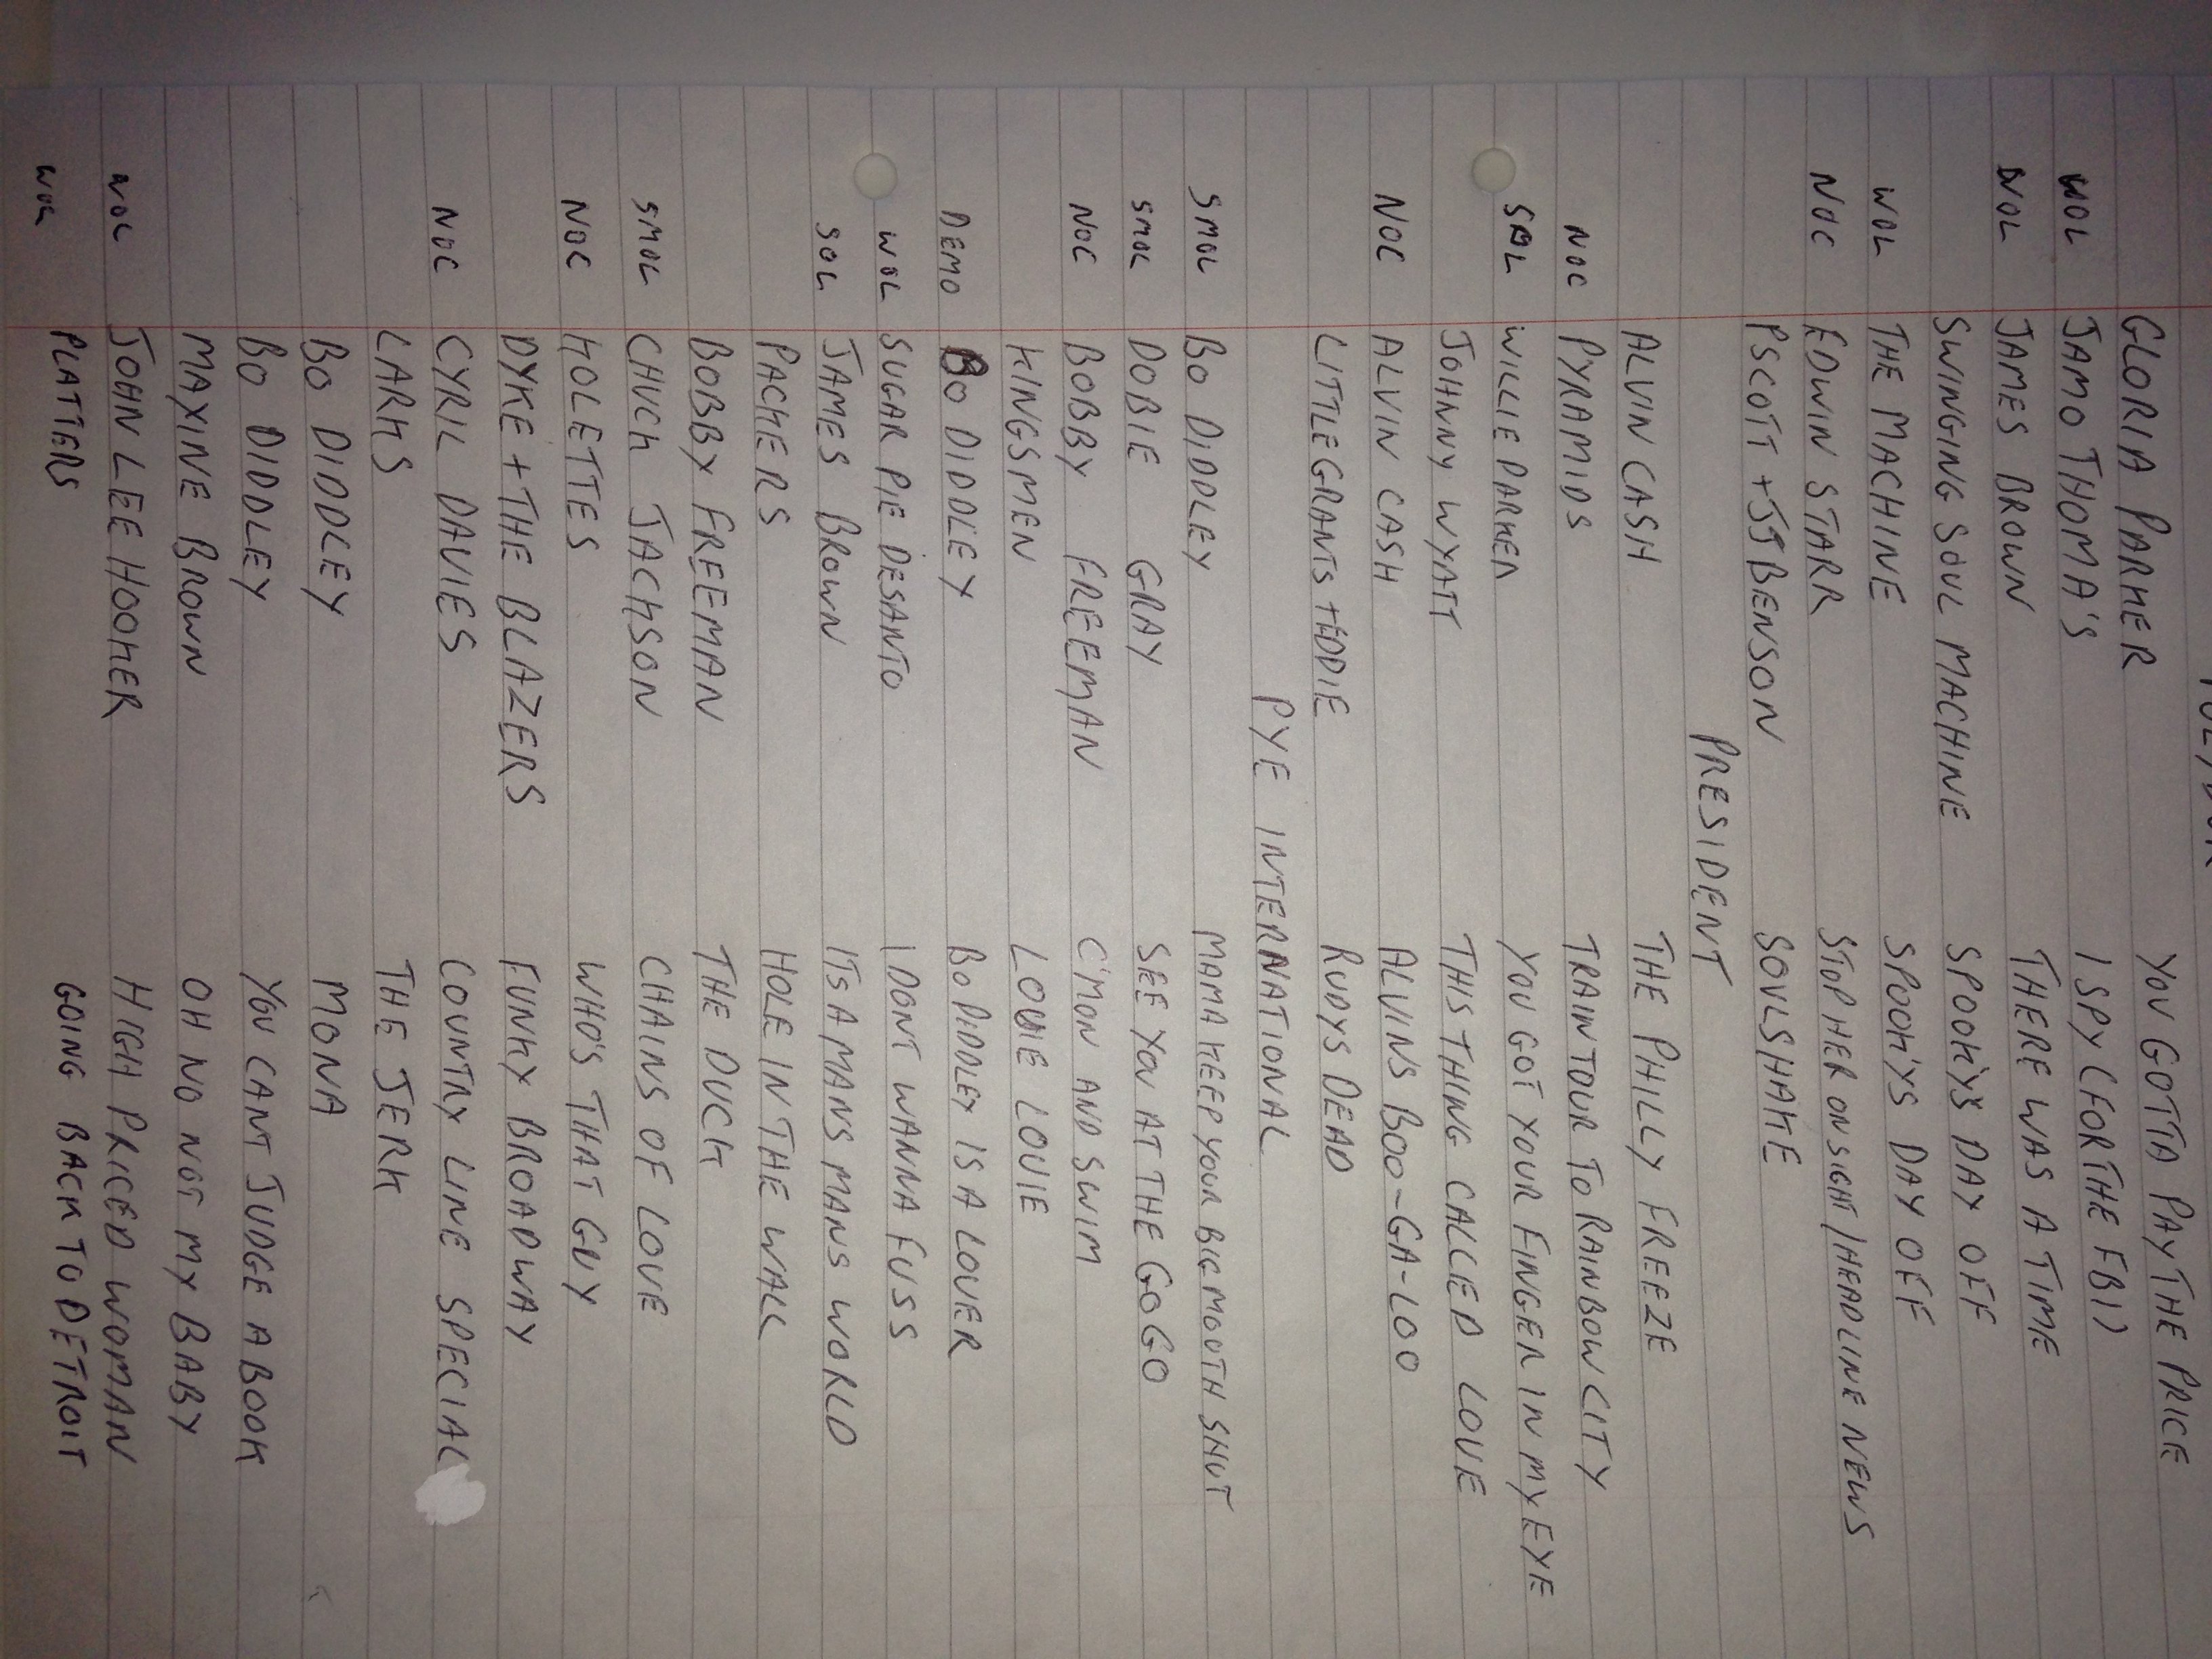 GLORIA PARKER YOU GOTTA PAY THE PRICE
WOL JAMO THOMA'S I SPY (FOR THE FBI)
WOL JAMES BROWN THERE WAS A TIME
SWINGING SOUL MACHINE SPOOKY'S DAY OFF
WOL THE MACHINE SPOOKY'S DAY OFF
NOC EDWIN STARR STOP HER ON SIGHT/HEADLINE NEWS
P SCOTT + JJ BENSON SOULSHAKE
PRESIDENT
ALVIN CASH THE PHILLY FREEZE
NOC PYRAMIDS TRAIN TOUR TO RAINBOW CITY
SOL WILLIE PARKER YOU GOT YOUR FINGER IN MY EYE
JOHNNY WYATT THIS THING CALLED LOVE
NOC ALVIN CASH ALVIN'S BOO-GA-LOO
LITTLE GRANTS + EDDIE RUDYS DEAD
PYE INTERNATIONAL
SMOL BO DIDDLEY MAMA KEEP YOUR BIG MOUTH SHUT
SMOL DOBIE GRAY SEE YOU AT THE GO GO
NOC BOBBY FREEMAN C'MON AND SWIM
KINGSMEN LOUIE LOUIE
DEMO BO DIDDLEY BO DIDDLEY IS A LOVER
WOL SUGAR PIE DESANTO I DONT WANNA FUSS
SOL JAMES BROWN ITS A MANS MANS WORLD
PACKERS HOLE IN THE WALL
BOBBY FREEMAN THE DUCK
SMOL CHUCK JACKSON CHAINS OF LOVE
NOC KOLETTES WHO'S THAT GUY
DYKE + THE BLAZERS FUNKY BROADWAY
NOC CYRIL DAVIES COUNTRY LINE SPECIAL
LARKS THE JERK
BO DIDDLEY MONA
BO DIDDLEY YOU CANT JUDGE A BOOK
MAXINE BROWN OH NO NOT MY BABY
WOL JOHN LEE HOOKER HIGH PRICED WOMAN
WOL PLATTERS GOING BACK TO DETROIT